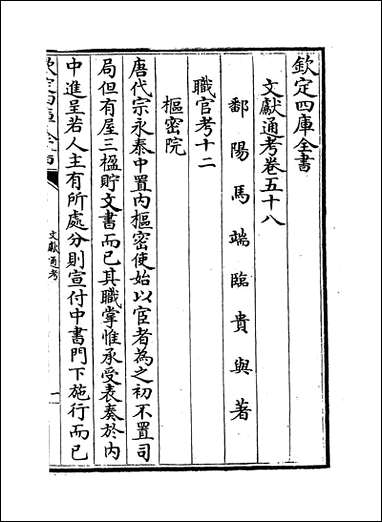 欽定四庫全書
文獻通考卷五十八
鄱陽馬端臨貴與著
職官考十二
樞密院
唐代宗永泰中置内樞密使始以宦者為之初不置司
局但有屋三楹貯文書而已其職掌惟承受表奏於内
中進呈若人主有所處分則宣付中書門下施行而已
文獻通考
一